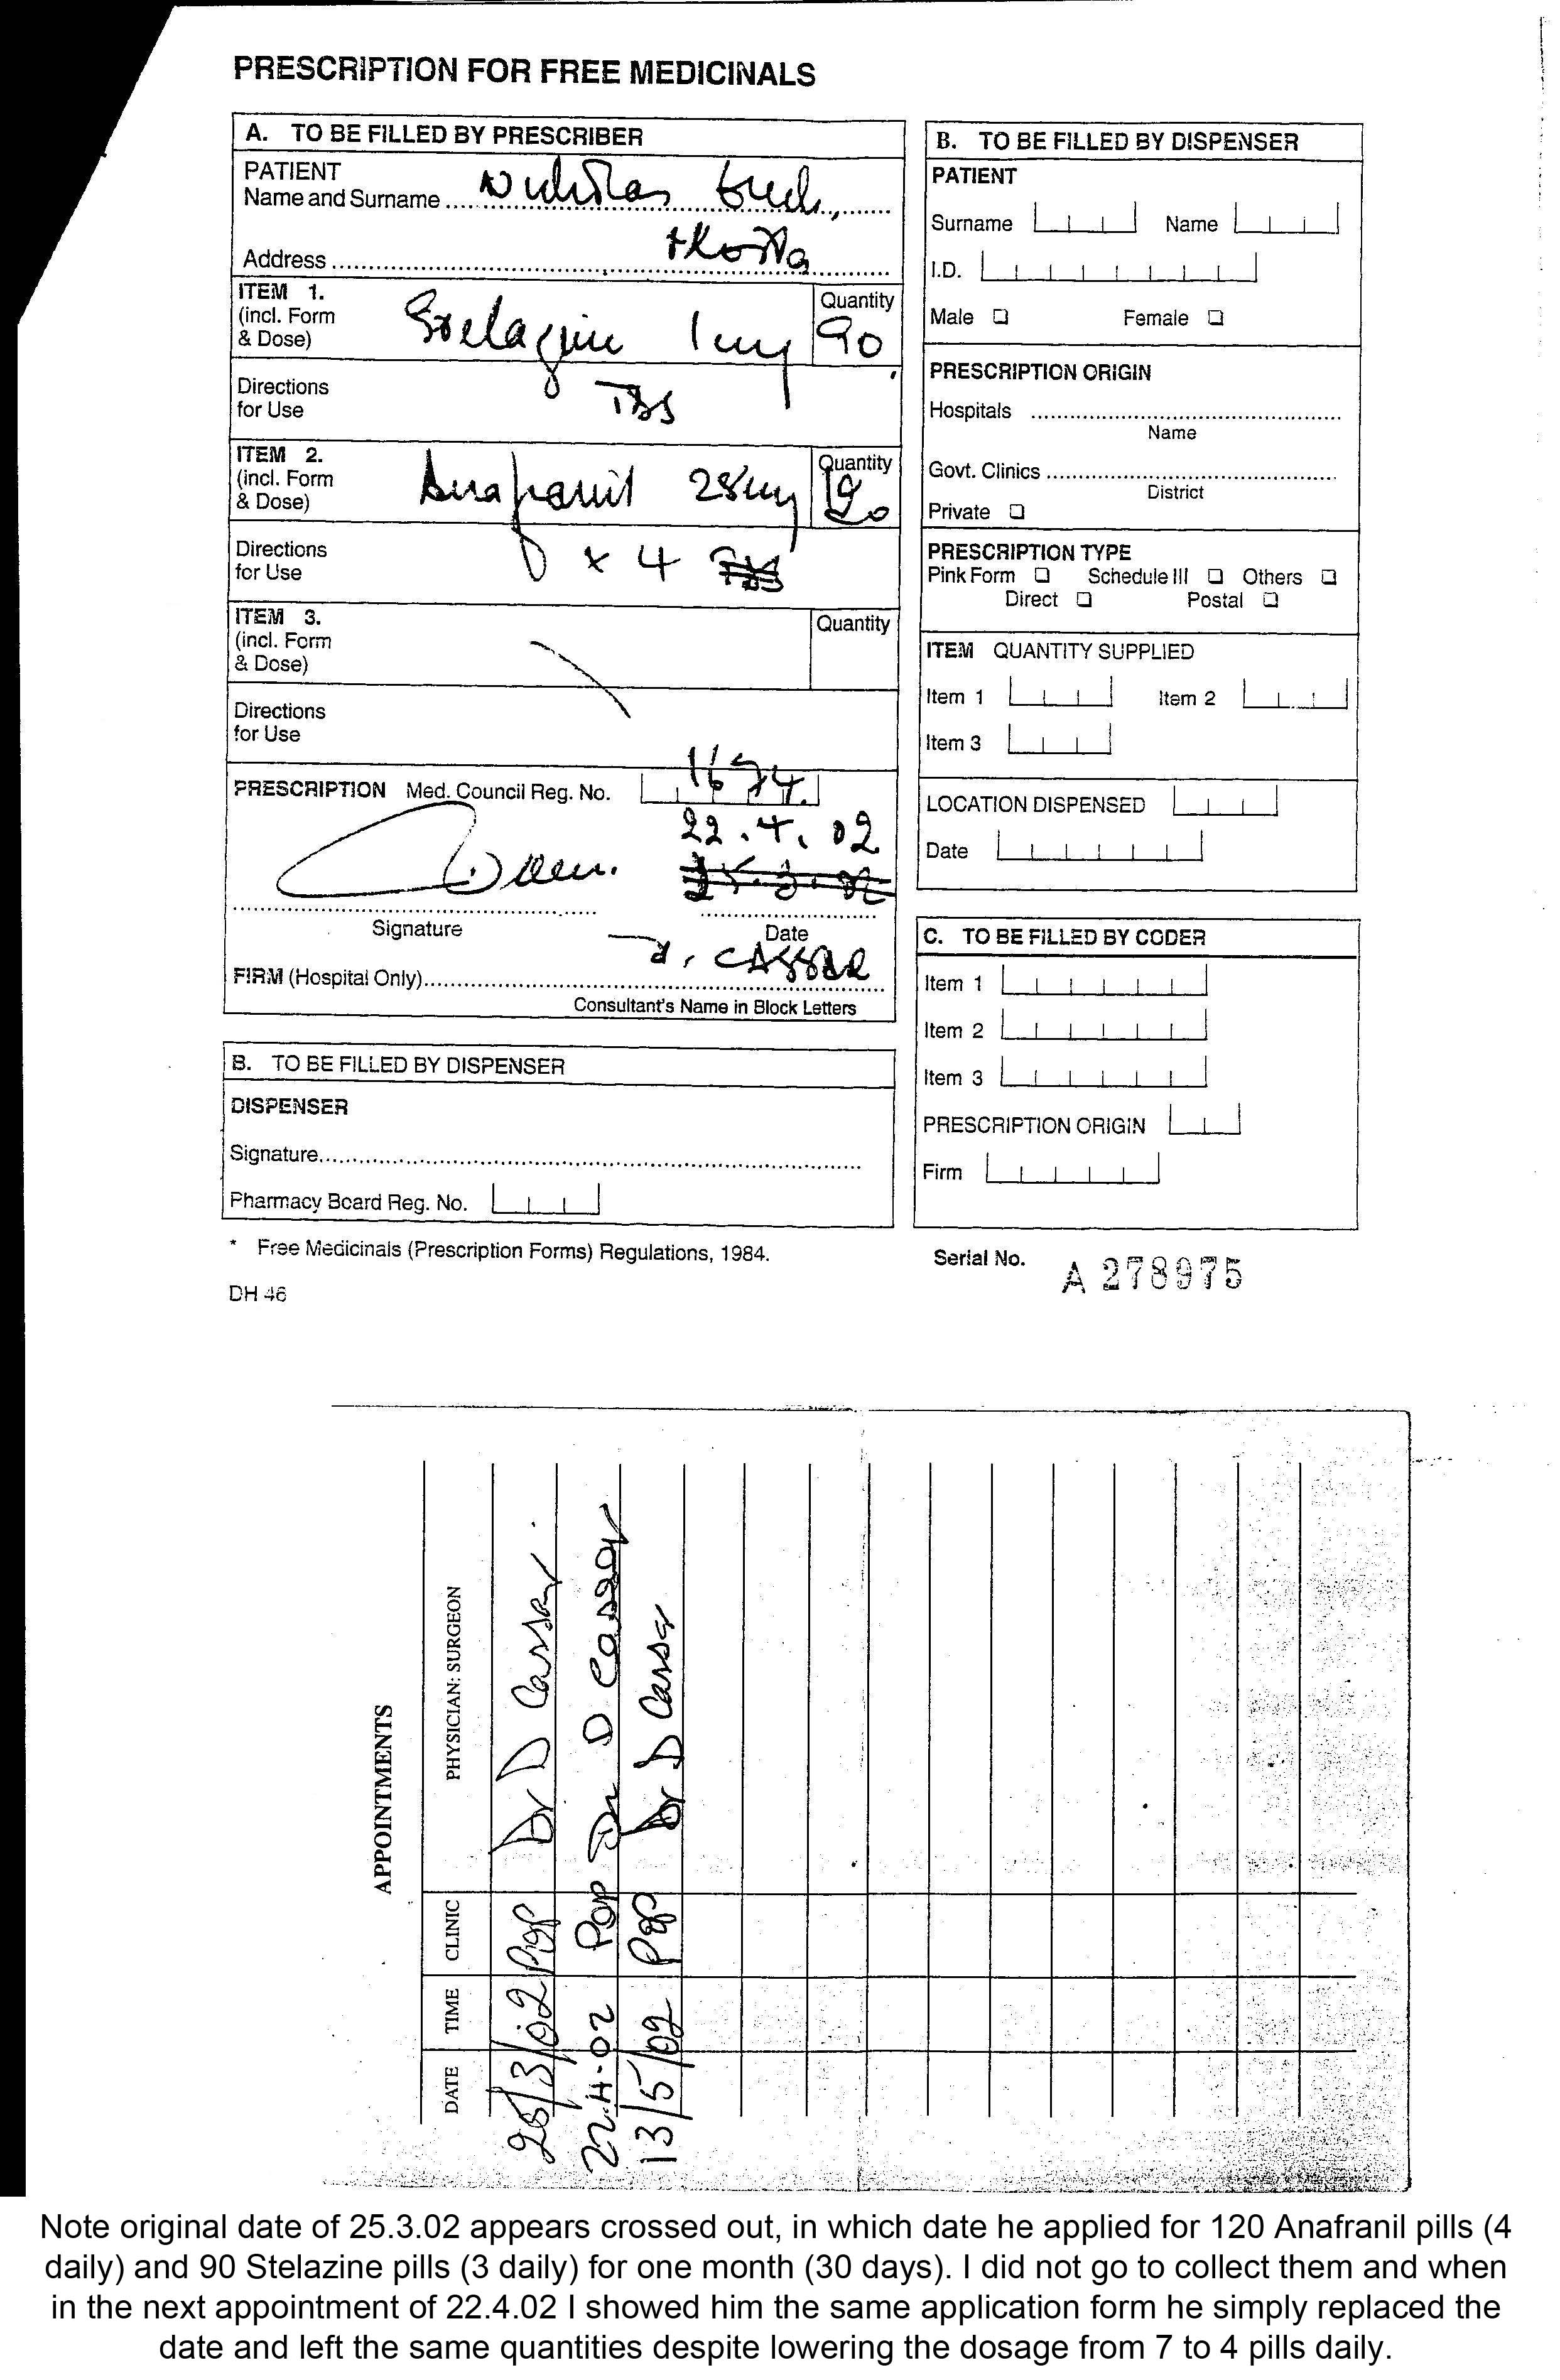 PRESCRIPTION FOR FREE MEDICINALS
A. TO BE FILLED BY PRESCRIBER
PATIENT
Name and Surname Nicholas
Address
ITEM 1.
(incl. Form
& Dose)
Stelazine 1mg
Quantity
90
Directions
for Use
TDS
ITEM 2.
(incl. Form
& Dose)
Anafranil 25mg
Quantity
120
Directions
for Use
x 4
ITEM 3.
(incl. Form
& Dose)
Quantity
Directions
for Use
PRESCRIPTION Med. Council Reg. No. 1674
22.4.02
25.3.02
Signature
Date
D. CASSAR
FIRM (Hospital Only)
Consultant's Name in Block Letters
B. TO BE FILLED BY DISPENSER
DISPENSER
Signature
Pharmacy Board Reg. No.
* Free Medicinals (Prescription Forms) Regulations, 1984.
DH 46
B. TO BE FILLED BY DISPENSER
PATIENT
Surname Name
I.D.
Male Female
PRESCRIPTION ORIGIN
Hospitals
Name
Govt. Clinics
District
Private
PRESCRIPTION TYPE
Pink Form Schedule III Others
Direct Postal
ITEM QUANTITY SUPPLIED
Item 1 Item 2
Item 3
LOCATION DISPENSED
Date
C. TO BE FILLED BY CODER
Item 1
Item 2
Item 3
PRESCRIPTION ORIGIN
Firm
Serial No. A 278975
APPOINTMENTS
DATE TIME CLINIC PHYSICIAN: SURGEON
25/3/02 POP Dr D Cassar
22-4-02 POP Dr D Cassar
13/5/02 POP Dr D Cassar
Note original date of 25.3.02 appears crossed out, in which date he applied for 120 Anafranil pills (4
daily) and 90 Stelazine pills (3 daily) for one month (30 days). I did not go to collect them and when
in the next appointment of 22.4.02 I showed him the same application form he simply replaced the
date and left the same quantities despite lowering the dosage from 7 to 4 pills daily.